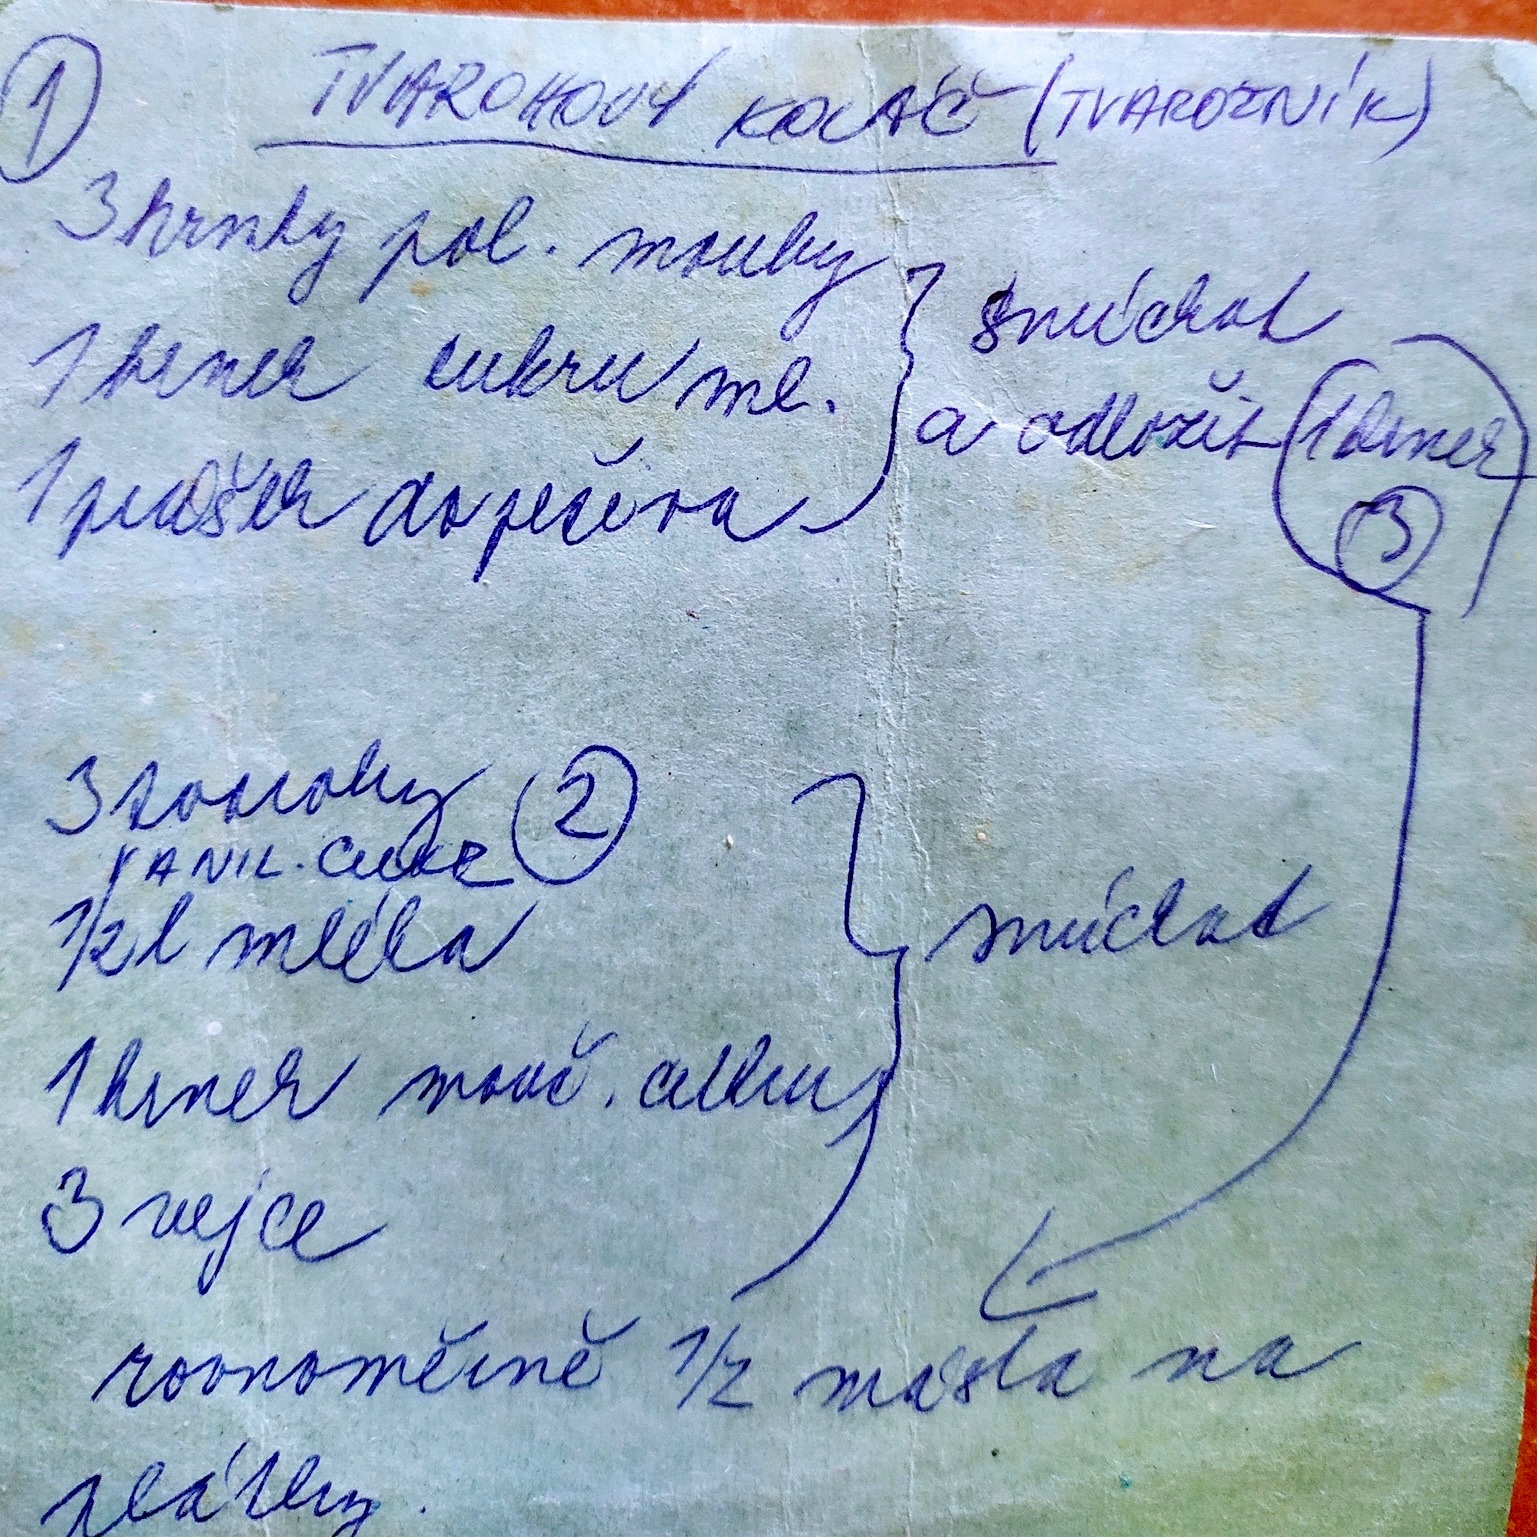 1 TVAROHOVÝ KOLÁČ (TVAROŽNÍK)
3 hrnky pol. mouky
1 hrnek cukru ml.
1 prášek do pečiva
smíchat
a odložit 1 hrnek
3
3 tvarohy 2
VANIL. CUKR
1/2 l mléka
1 hrnek mouč. cukru
3 vejce
smíchat
rovnoměrně 1/2 másla na
plátky.